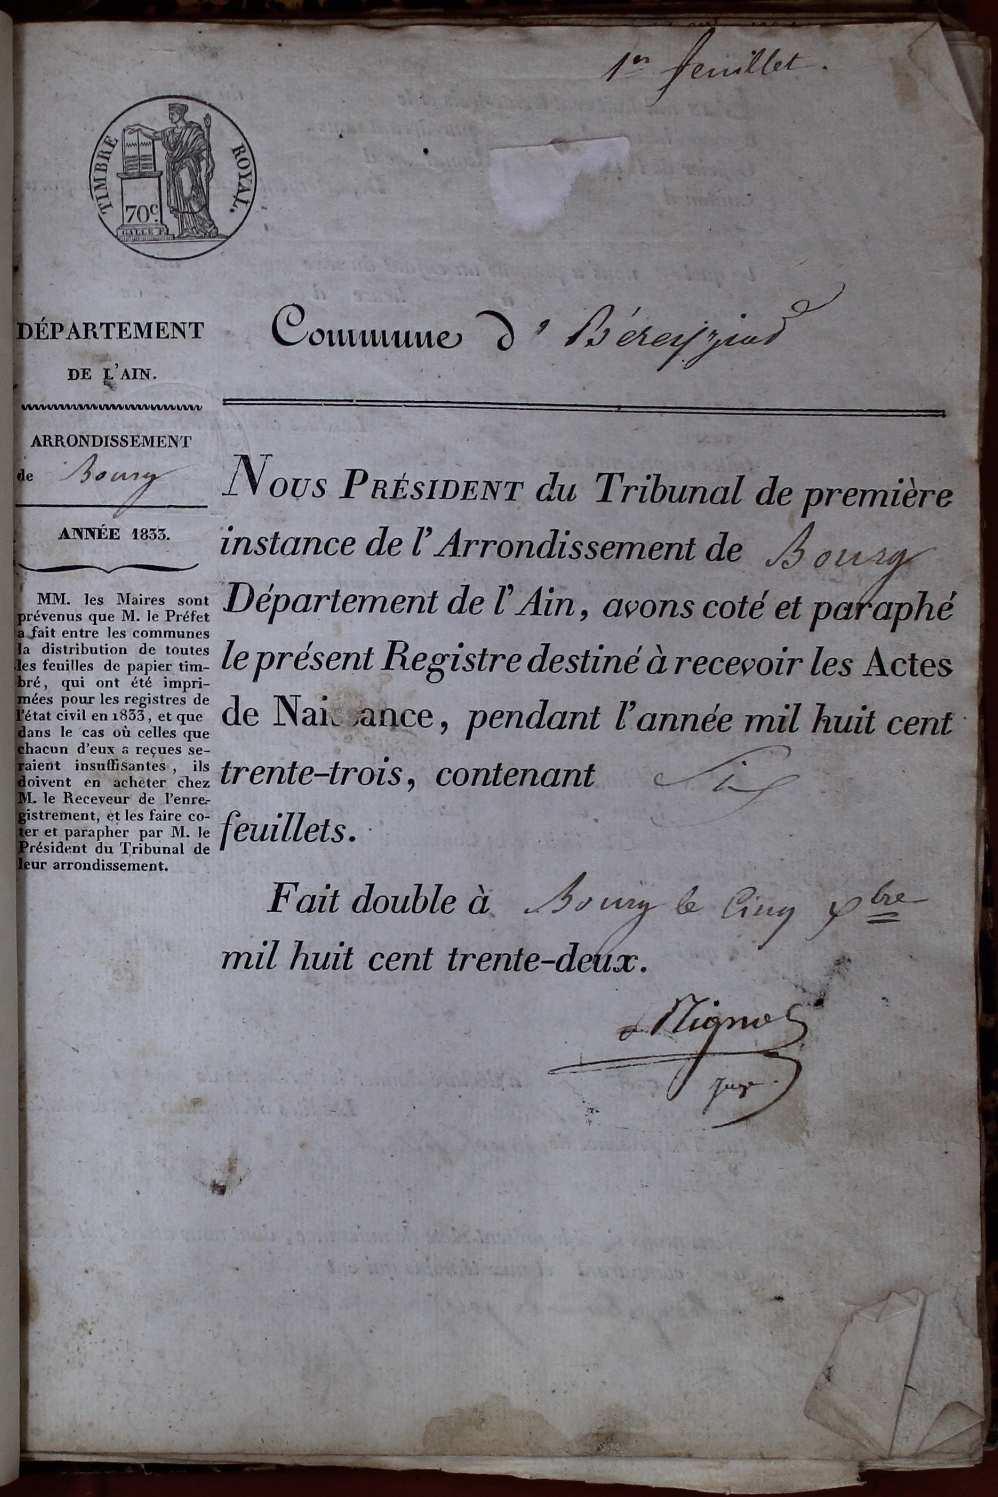 1er feuillet.
TIMBRE ROYAL.
70c.
GALLE F.
DÉPARTEMENT
DE L'AIN.
Commune d' Béreyziad
ARRONDISSEMENT
de Bourg
ANNÉE 1833.
MM. les Maires sont
prévenus que M. le Préfet
a fait entre les communes
la distribution de toutes
les feuilles de papier tim-
bré, qui ont été impri-
mées pour les registres de
l'état civil en 1833, et que
dans le cas où celles que
chacun d'eux a reçues se-
raient insuffisantes, ils
doivent en acheter chez
M. le Receveur de l'enre-
gistrement, et les faire co-
ter et parapher par M. le
Président du Tribunal de
leur arrondissement.
NOUS PRÉSIDENT du Tribunal de première
instance de l'Arrondissement de Bourg
Département de l'Ain, avons coté et paraphé
le présent Registre destiné à recevoir les Actes
de Naissance, pendant l'année mil huit cent
trente-trois, contenant Six
feuillets.
Fait double à Bourg le Cinq Xbre
mil huit cent trente-deux.
Juge